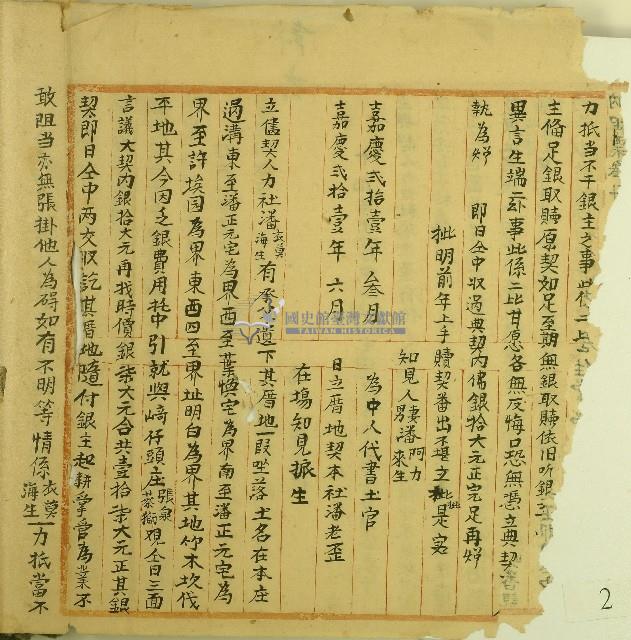 力抵当不干銀主之事此係二比
主俻足銀取贖原契如足至期無銀取贖依旧听銀主
異言生端滋事此係二比甘愿各無反悔口恐無憑立典契
執為炤　即日仝中収過典契內佛銀拾大元正完足再炤
批明前年上手贖契番出不堪立批批是寔
知見人妻潘阿力
男潘來生
嘉慶弍拾壹年叁月
為中人代書土官
嘉慶弍拾壹年六月
日立厝地契本社潘老歪
在塲知見振生
立舊契人力社潘衣莫
海生有承遺下其厝地一叚坐落土名在本庄
過溝東至潘正元宅為界西至葉悔宅為界南至潘正元宅為
界至許埃园為界東西四至界址明白為界其地竹木坎伐
平地其今因乏銀費用托中引就與﨑仔頭庄張泉
蔡獅硯仝日三面
言議大契內銀拾大元再找時價銀柒大元合共壹拾柒大元正其銀
契即日仝中両交収訖其厝地隨付銀主起耕掌管為業不
敢阻当亦無張掛他人為碍如有不明等情係衣莫
海生一力抵當不
國史館臺灣文獻館
TAIWAN HISTORICA
2